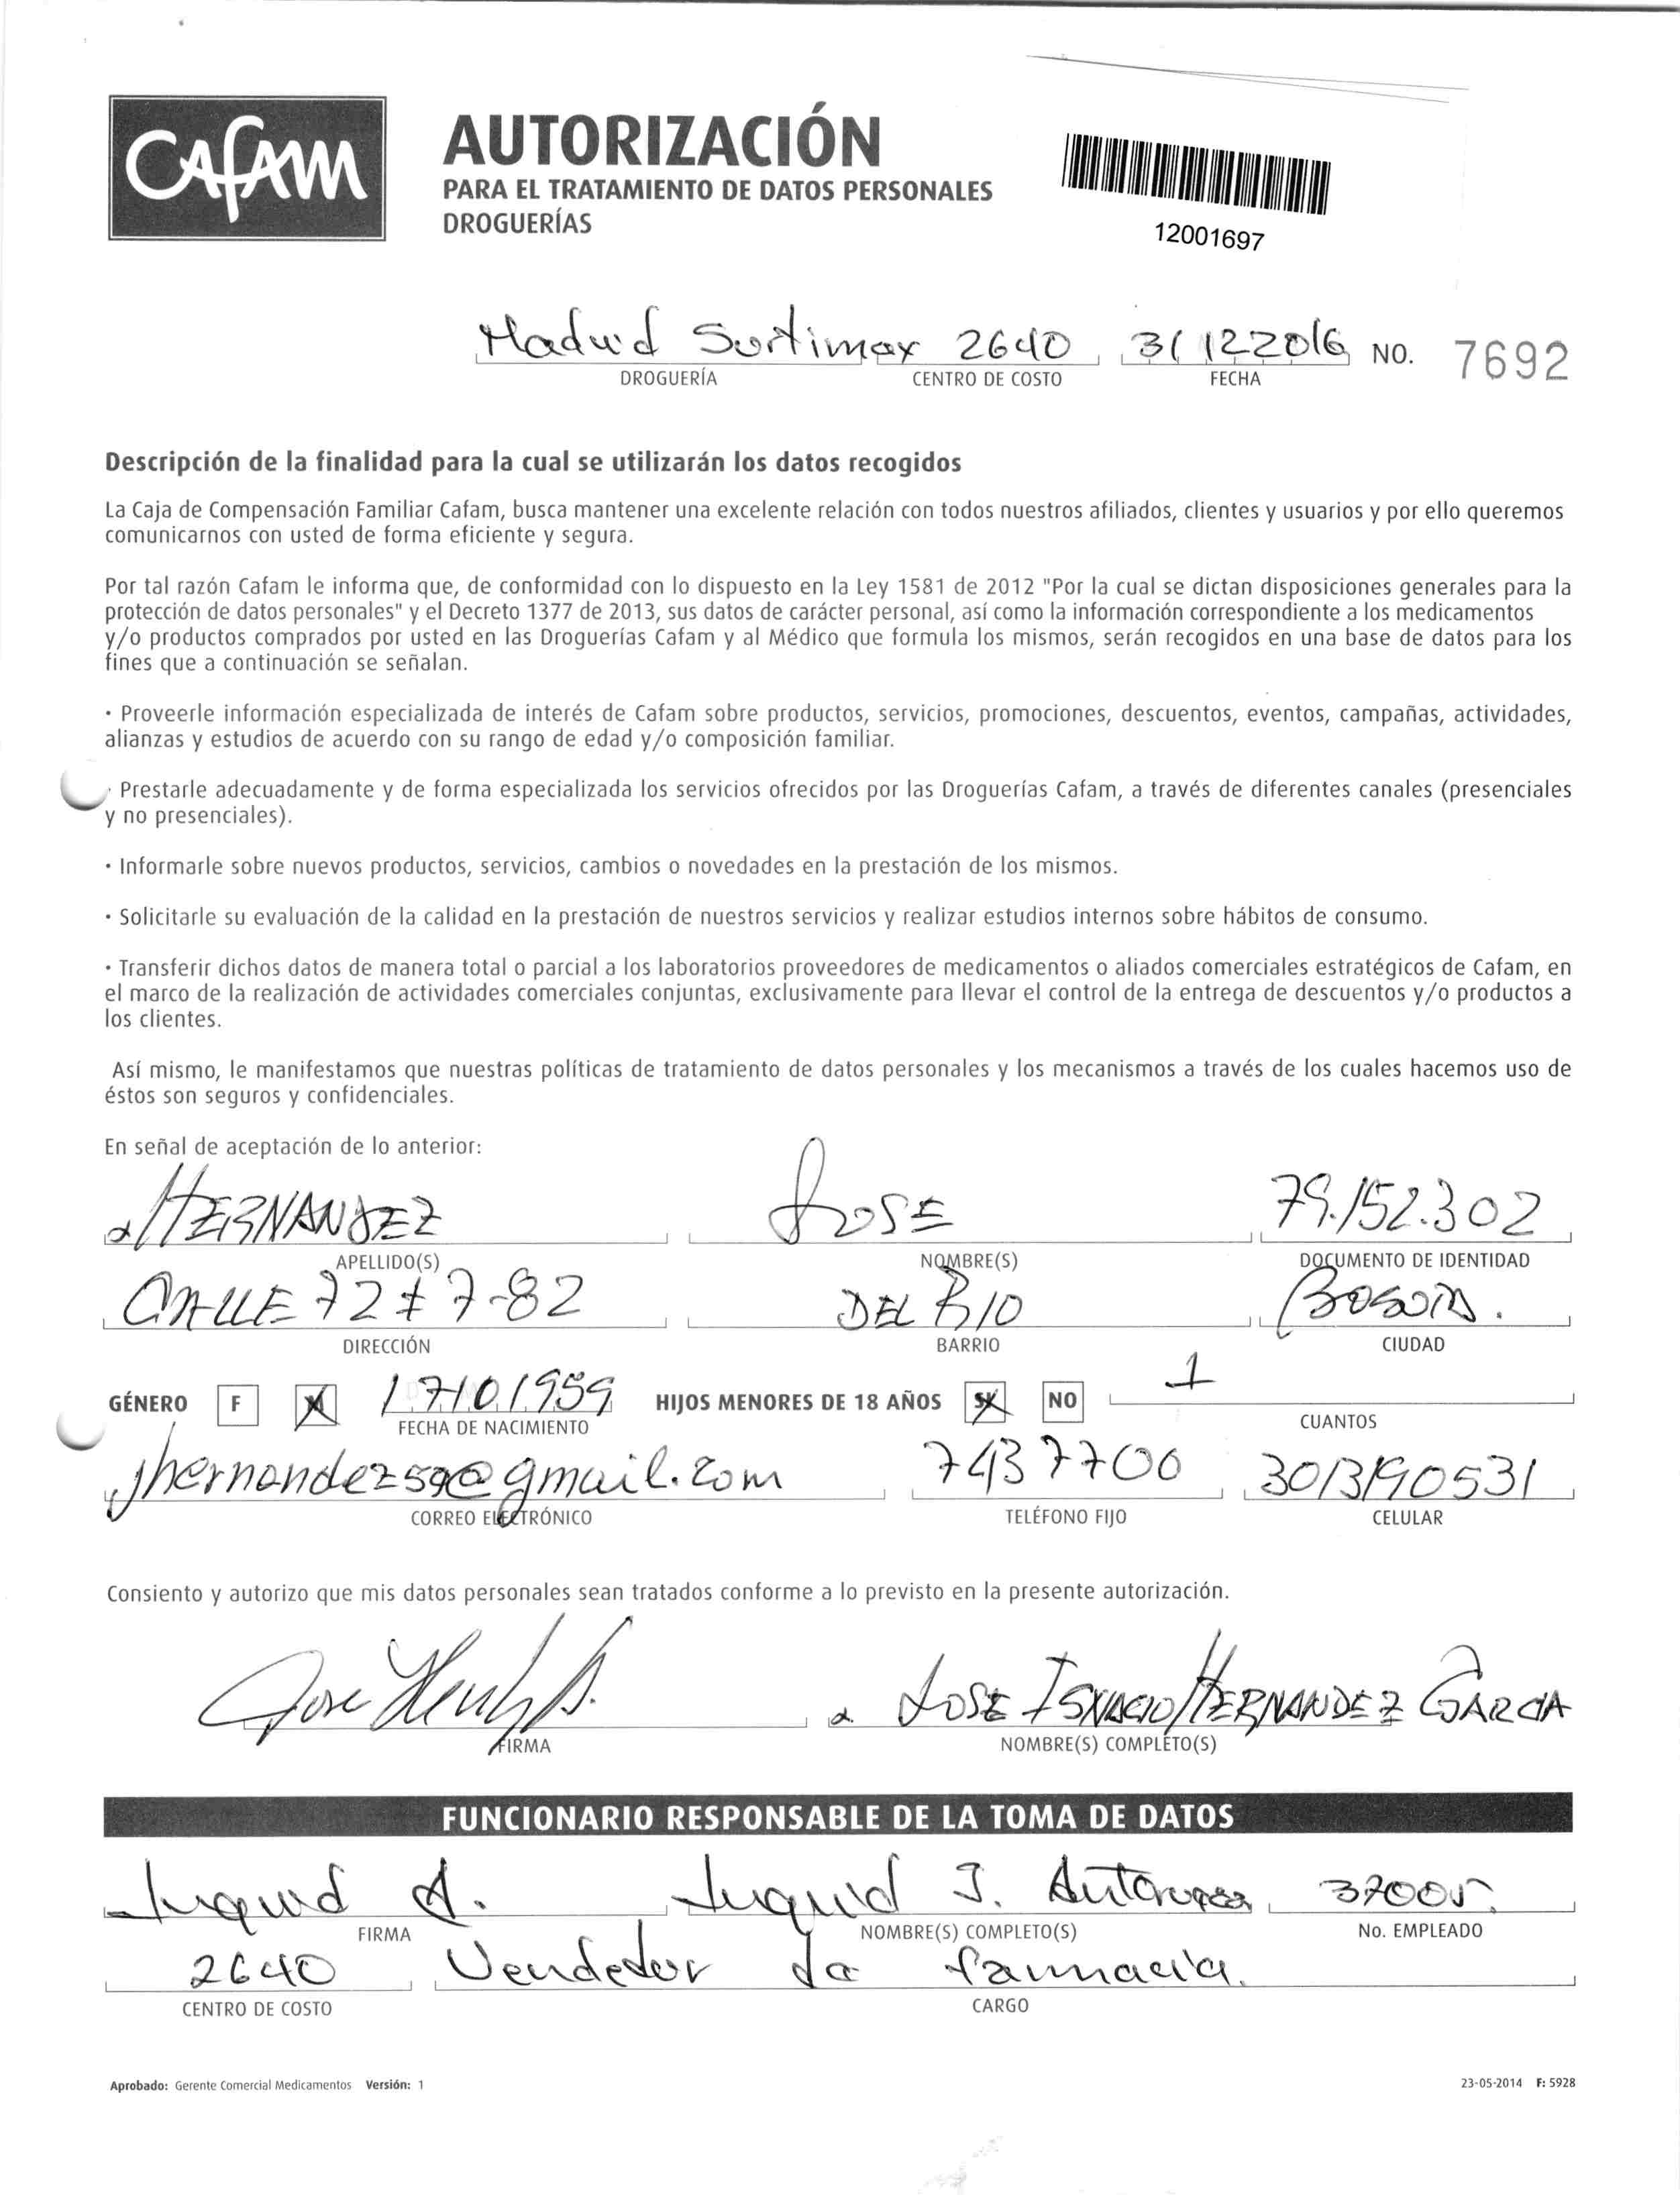 Cafam
AUTORIZACIÓN
PARA EL TRATAMIENTO DE DATOS PERSONALES
DROGUERÍAS
12001697
Madrid Surtimax 2640 31 12 2016 NO. 7692
DROGUERÍA CENTRO DE COSTO FECHA
Descripción de la finalidad para la cual se utilizarán los datos recogidos
La Caja de Compensación Familiar Cafam, busca mantener una excelente relación con todos nuestros afiliados, clientes y usuarios y por ello queremos
comunicarnos con usted de forma eficiente y segura.
Por tal razón Cafam le informa que, de conformidad con lo dispuesto en la Ley 1581 de 2012 "Por la cual se dictan disposiciones generales para la
protección de datos personales" y el Decreto 1377 de 2013, sus datos de carácter personal, así como la información correspondiente a los medicamentos
y/o productos comprados por usted en las Droguerías Cafam y al Médico que formula los mismos, serán recogidos en una base de datos para los
fines que a continuación se señalan.
· Proveerle información especializada de interés de Cafam sobre productos, servicios, promociones, descuentos, eventos, campañas, actividades,
alianzas y estudios de acuerdo con su rango de edad y/o composición familiar.
· Prestarle adecuadamente y de forma especializada los servicios ofrecidos por las Droguerías Cafam, a través de diferentes canales (presenciales
y no presenciales).
· Informarle sobre nuevos productos, servicios, cambios o novedades en la prestación de los mismos.
· Solicitarle su evaluación de la calidad en la prestación de nuestros servicios y realizar estudios internos sobre hábitos de consumo.
· Transferir dichos datos de manera total o parcial a los laboratorios proveedores de medicamentos o aliados comerciales estratégicos de Cafam, en
el marco de la realización de actividades comerciales conjuntas, exclusivamente para llevar el control de la entrega de descuentos y/o productos a
los clientes.
Así mismo, le manifestamos que nuestras políticas de tratamiento de datos personales y los mecanismos a través de los cuales hacemos uso de
éstos son seguros y confidenciales.
En señal de aceptación de lo anterior:
HERNANDEZ JOSE 79.152.302
APELLIDO(S) NOMBRE(S) DOCUMENTO DE IDENTIDAD
CALLE 72 # 7-82 DEL RIO BOGOTA.
DIRECCIÓN BARRIO CIUDAD
GÉNERO F M 17 10 1959 HIJOS MENORES DE 18 AÑOS SI NO 1
FECHA DE NACIMIENTO CUANTOS
jhernandez59@gmail.com 7437700 3013190531
CORREO ELECTRÓNICO TELÉFONO FIJO CELULAR
Consiento y autorizo que mis datos personales sean tratados conforme a lo previsto en la presente autorización.
Jose JOSE IGNACIO HERNANDEZ GARCIA
FIRMA NOMBRE(S) COMPLETO(S)
FUNCIONARIO RESPONSABLE DE LA TOMA DE DATOS
Ingrid A. Ingrid J. 37005
FIRMA NOMBRE(S) COMPLETO(S) No. EMPLEADO
2640 Vendedor de farmacia.
CENTRO DE COSTO CARGO
Aprobado: Gerente Comercial Medicamentos Versión: 1 23-05-2014 F: 5928